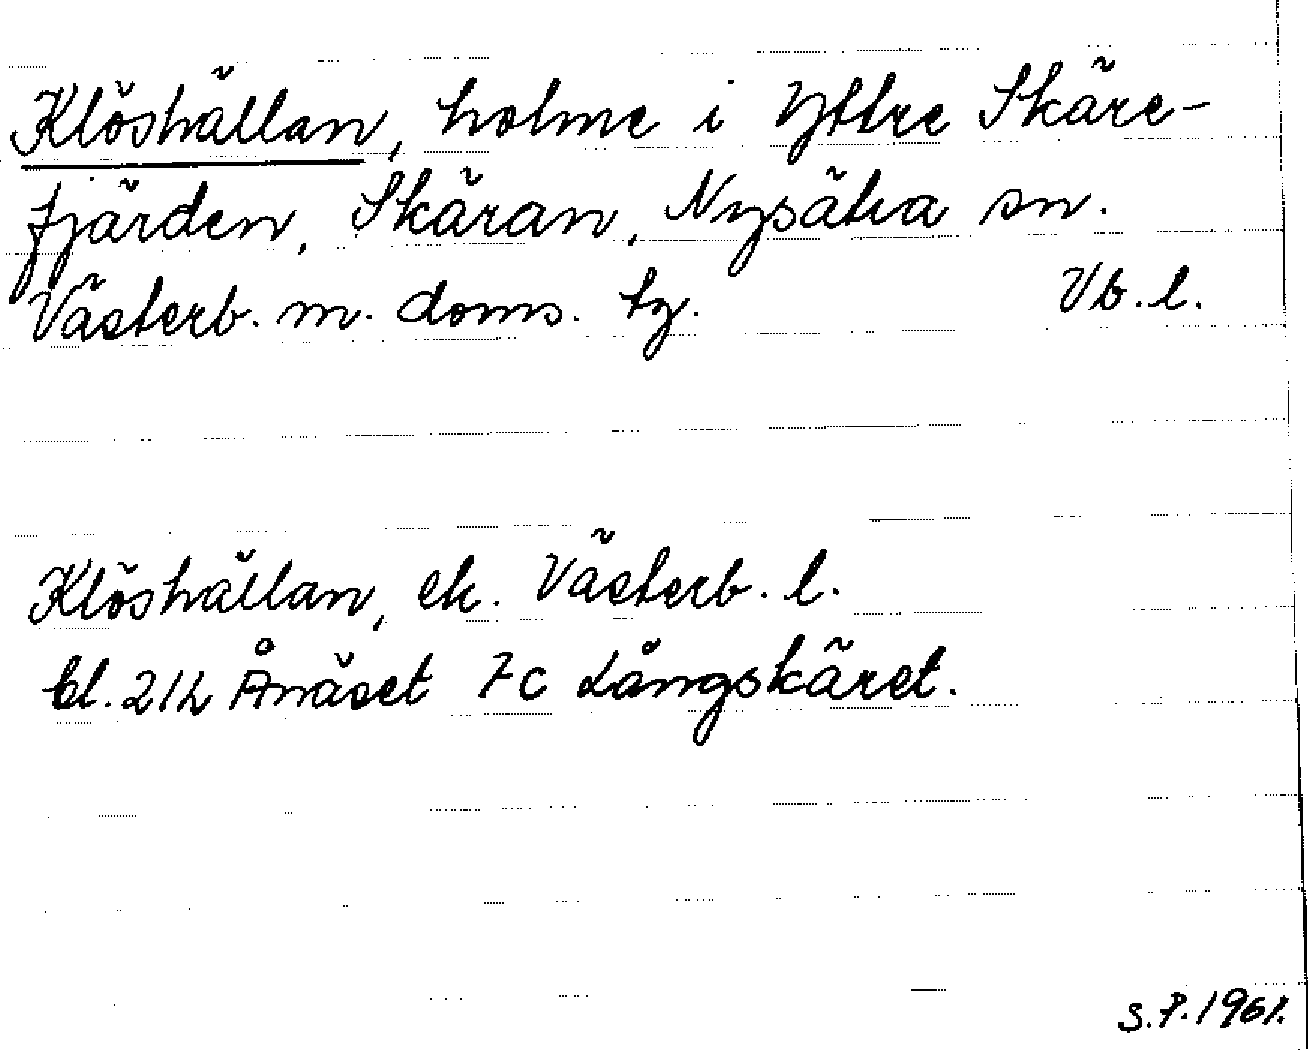 Klöshällan, holme i Yttre Skäre-
fjärden, Skäran, Nysätra sn.
Västerb. m. doms. tg. Vb. l.
Klöshällan, ek. Västerb. l.
bl. 21h Ånäset 7c Långskäret.
S.P. 1961.